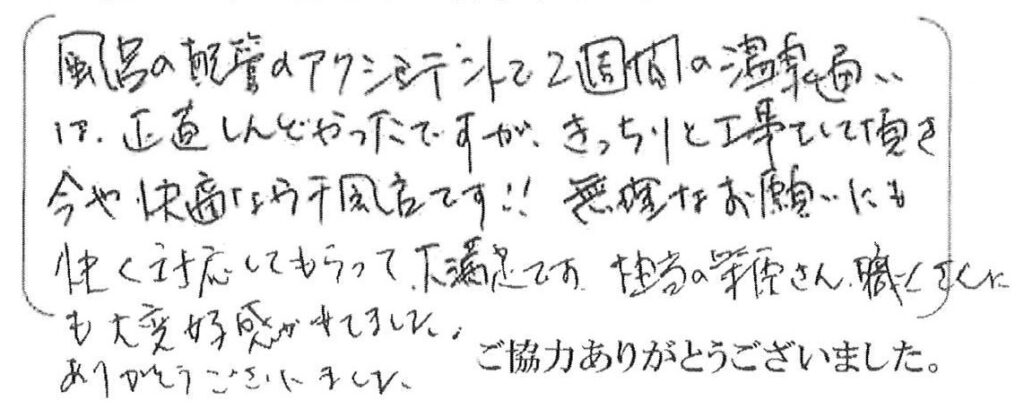 風呂の配管のアクシデントで2週間の温泉通い
は、正直しんどかったですが、きっちりと工事をして頂き
今や快適なお風呂です!! 無理なお願いにも
快く対応してもらって、大満足です 担当の さん、職人さんに
も大変好感がもてました。
ありがとうございました。
ご協力ありがとうございました。